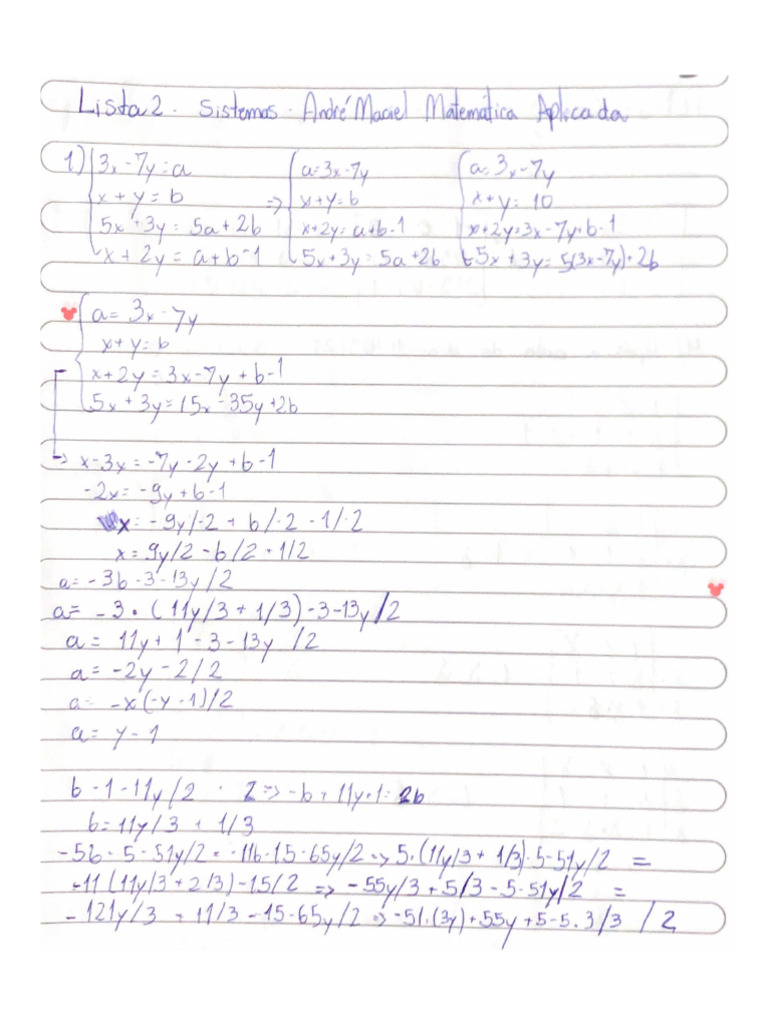 Lista 2 . Sistemas . André Maciel Matemática Aplicada
1) 3x - 7y = a a = 3x - 7y a = 3x - 7y
x + y = b => x + y = b x + y = 10
5x + 3y = 5a + 2b x + 2y = a + b - 1 x + 2y = 3x - 7y + b - 1
x + 2y = a + b - 1 5x + 3y = 5a + 2b 5x + 3y = 5(3x - 7y) + 2b
a = 3x - 7y
x + y = b
x + 2y = 3x - 7y + b - 1
5x + 3y = 15x - 35y + 2b
-> x - 3x = -7y - 2y + b - 1
-2x = -9y + b - 1
x = -9y/-2 + b/-2 - 1/-2
x = 9y/2 - b/2 + 1/2
a = -3b - 3 - 13y/2
a = -3 . (11y/3 + 1/3) - 3 - 13y/2
a = 11y + 1 - 3 - 13y /2
a = -2y - 2/2
a = -x(-y - 1)/2
a = y - 1
b - 1 - 11y/2 . 2 => -b + 11y + 1 = 2b
b = 11y/3 + 1/3
-5b - 5 - 51y/2 = -11b - 15 - 65y/2 => 5.(11y/3 + 1/3) - 5 - 51y/2 =
-11(11y/3 + 2/3) - 15/2 => -55y/3 + 5/3 - 5 - 51y/2 =
-121y/3 - 11/3 - 15 - 65y/2 => -51.(3y) + 55y + 5 - 5.3/3 /2